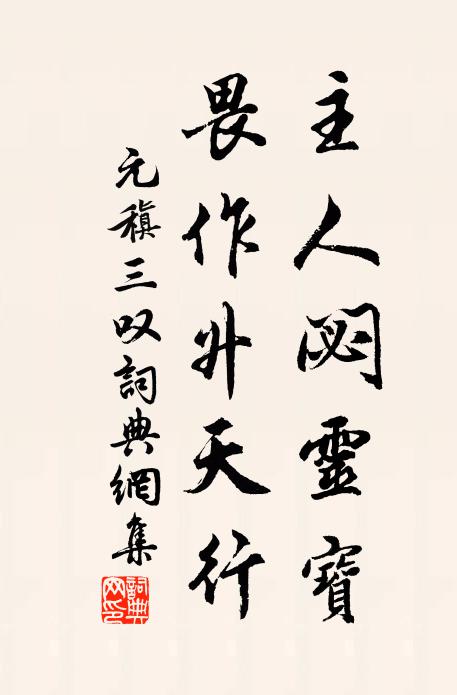 主人閟靈寶
畏作升天行
元稹三叹詞典網集
詞典網印